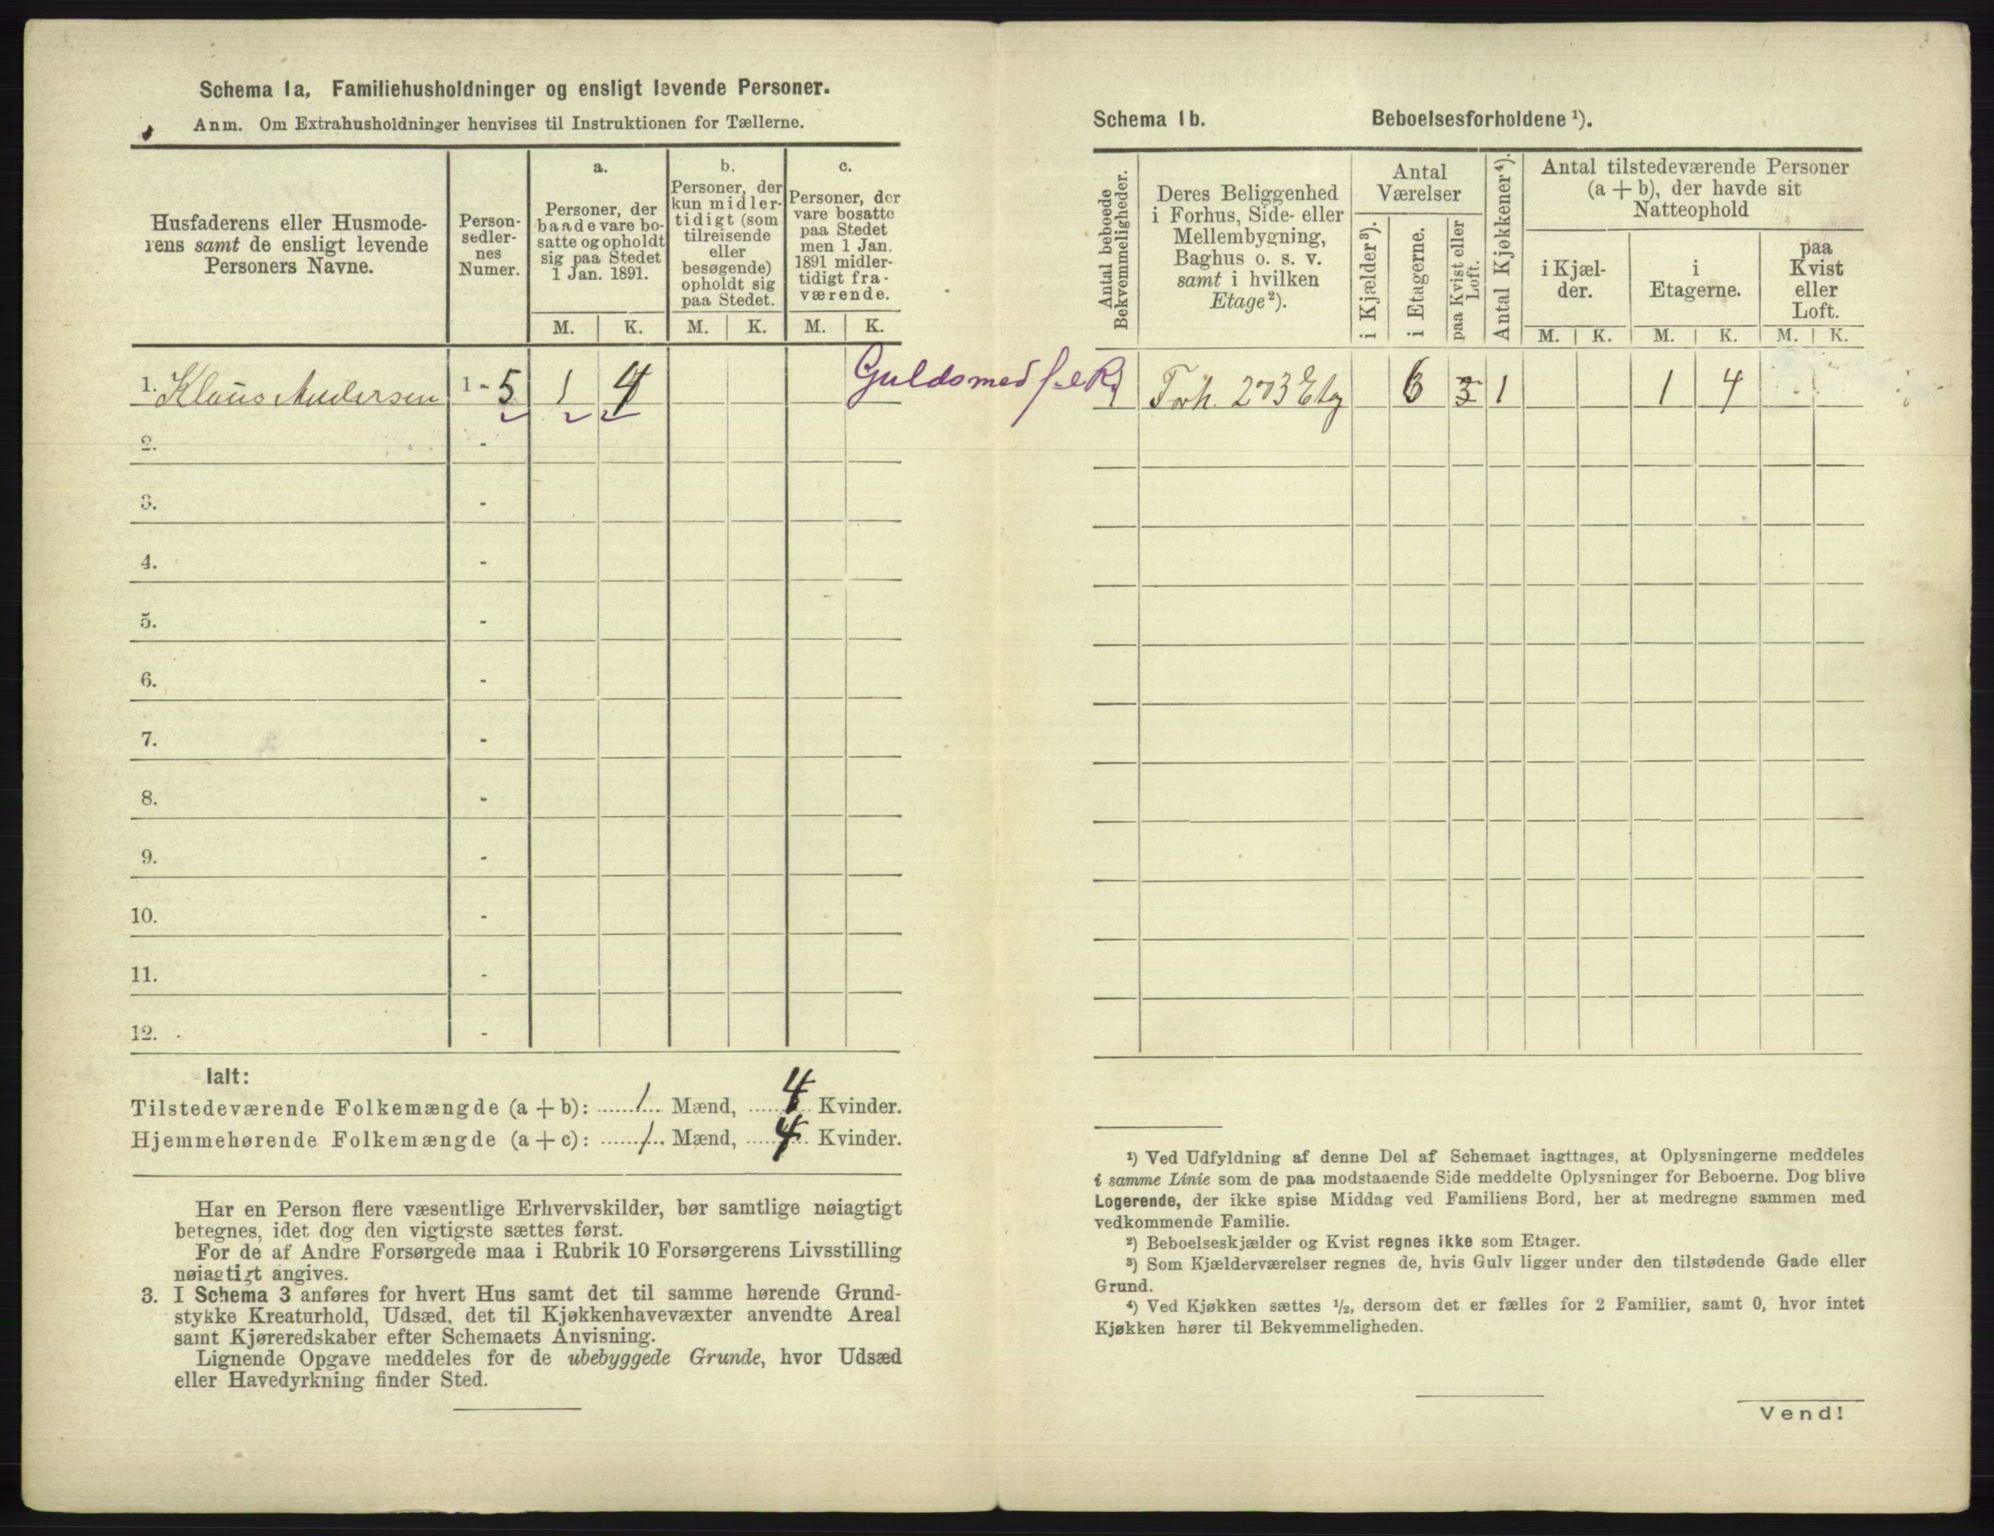 Schema 1a. Familiehusholdninger og ensligt levende Personer.
Anm. Om Extrahusholdninger henvises til Instruktionen for Tællerne.
Husfaderens eller Husmode-
rens samt de ensligt levende
Personers Navne.
Person-
sedler-
nes
Numer.
a.
Personer, der
baade vare bo-
satte og opholdt
sig paa Stedet
1 Jan. 1891.
b.
Personer, der
kun midler-
tidigt (som
tilreisende
eller
besøgende)
opholdt sig
paa Stedet.
c.
Personer, der
vare bosatte
paa Stedet
men 1 Jan.
1891 midler-
tidigt fra-
værende.
M. K. M. K. M. K.
1. Klaus Andersen 1 - 5 1 4 Guldsmed
2. -
3. -
4. -
5. -
6. -
7. -
8. -
9. -
10. -
11. -
12. -
Ialt:
Tilstedeværende Folkemængde (a + b): 1 Mænd, 4 Kvinder.
Hjemmehørende Folkemængde (a + c): 1 Mænd, 4 Kvinder.
Har en Person flere væsentlige Erhvervskilder, bør samtlige nøiagtigt
betegnes, idet dog den vigtigste sættes først.
For de af Andre Forsørgede maa i Rubrik 10 Forsørgerens Livsstilling
nøiagtigt angives.
3. I Schema 3 anføres for hvert Hus samt det til samme hørende Grund-
stykke Kreaturhold, Udsæd, det til Kjøkkenhavevæxter anvendte Areal
samt Kjøreredskaber efter Schemaets Anvisning.
Lignende Opgave meddeles for de ubebyggede Grunde, hvor Udsæd
eller Havedyrkning finder Sted.
Schema 1b. Beboelsesforholdene ¹).
Antal beboede
Bekvemmeligheder.
Deres Beliggenhed
i Forhus, Side- eller
Mellembygning,
Baghus o. s. v.
samt i hvilken
Etage²).
Antal
Værelser
i Kjælder³).
i Etagerne.
paa Kvist eller
Loft.
Antal Kjøkkener⁴).
Antal tilstedeværende Personer
(a + b), der havde sit
Natteophold
i Kjæl-
der.
i
Etagerne.
paa
Kvist
eller
Loft.
M. K. M. K. M. K.
1 Forh. 2 & 3 Etg 6 3 1 1 4
¹) Ved Udfyldning af denne Del af Schemaet iagttages, at Oplysningerne meddeles
i samme Linie som de paa modstaaende Side meddelte Oplysninger for Beboerne. Dog blive
Logerende, der ikke spise Middag ved Familiens Bord, her at medregne sammen med
vedkommende Familie.
²) Beboelseskjælder og Kvist regnes ikke som Etager.
³) Som Kjælderværelser regnes de, hvis Gulv ligger under den tilstødende Gade eller
Grund.
⁴) Ved Kjøkken sættes ½, dersom det er fælles for 2 Familier, samt 0, hvor intet
Kjøkken hører til Bekvemmeligheden.
Vend!